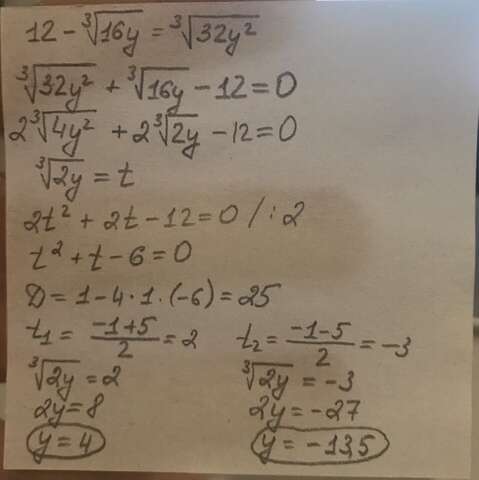 12 - ∛16y = ∛32y²
∛32y² + ∛16y - 12 = 0
2∛4y² + 2∛2y - 12 = 0
∛2y = t
2t² + 2t - 12 = 0 / : 2
t² + t - 6 = 0
D = 1 - 4 · 1 · (-6) = 25
t₁ = (-1+5)/2 = 2 t₂ = (-1-5)/2 = -3
∛2y = 2 ∛2y = -3
2y = 8 2y = -27
y = 4 y = -13,5